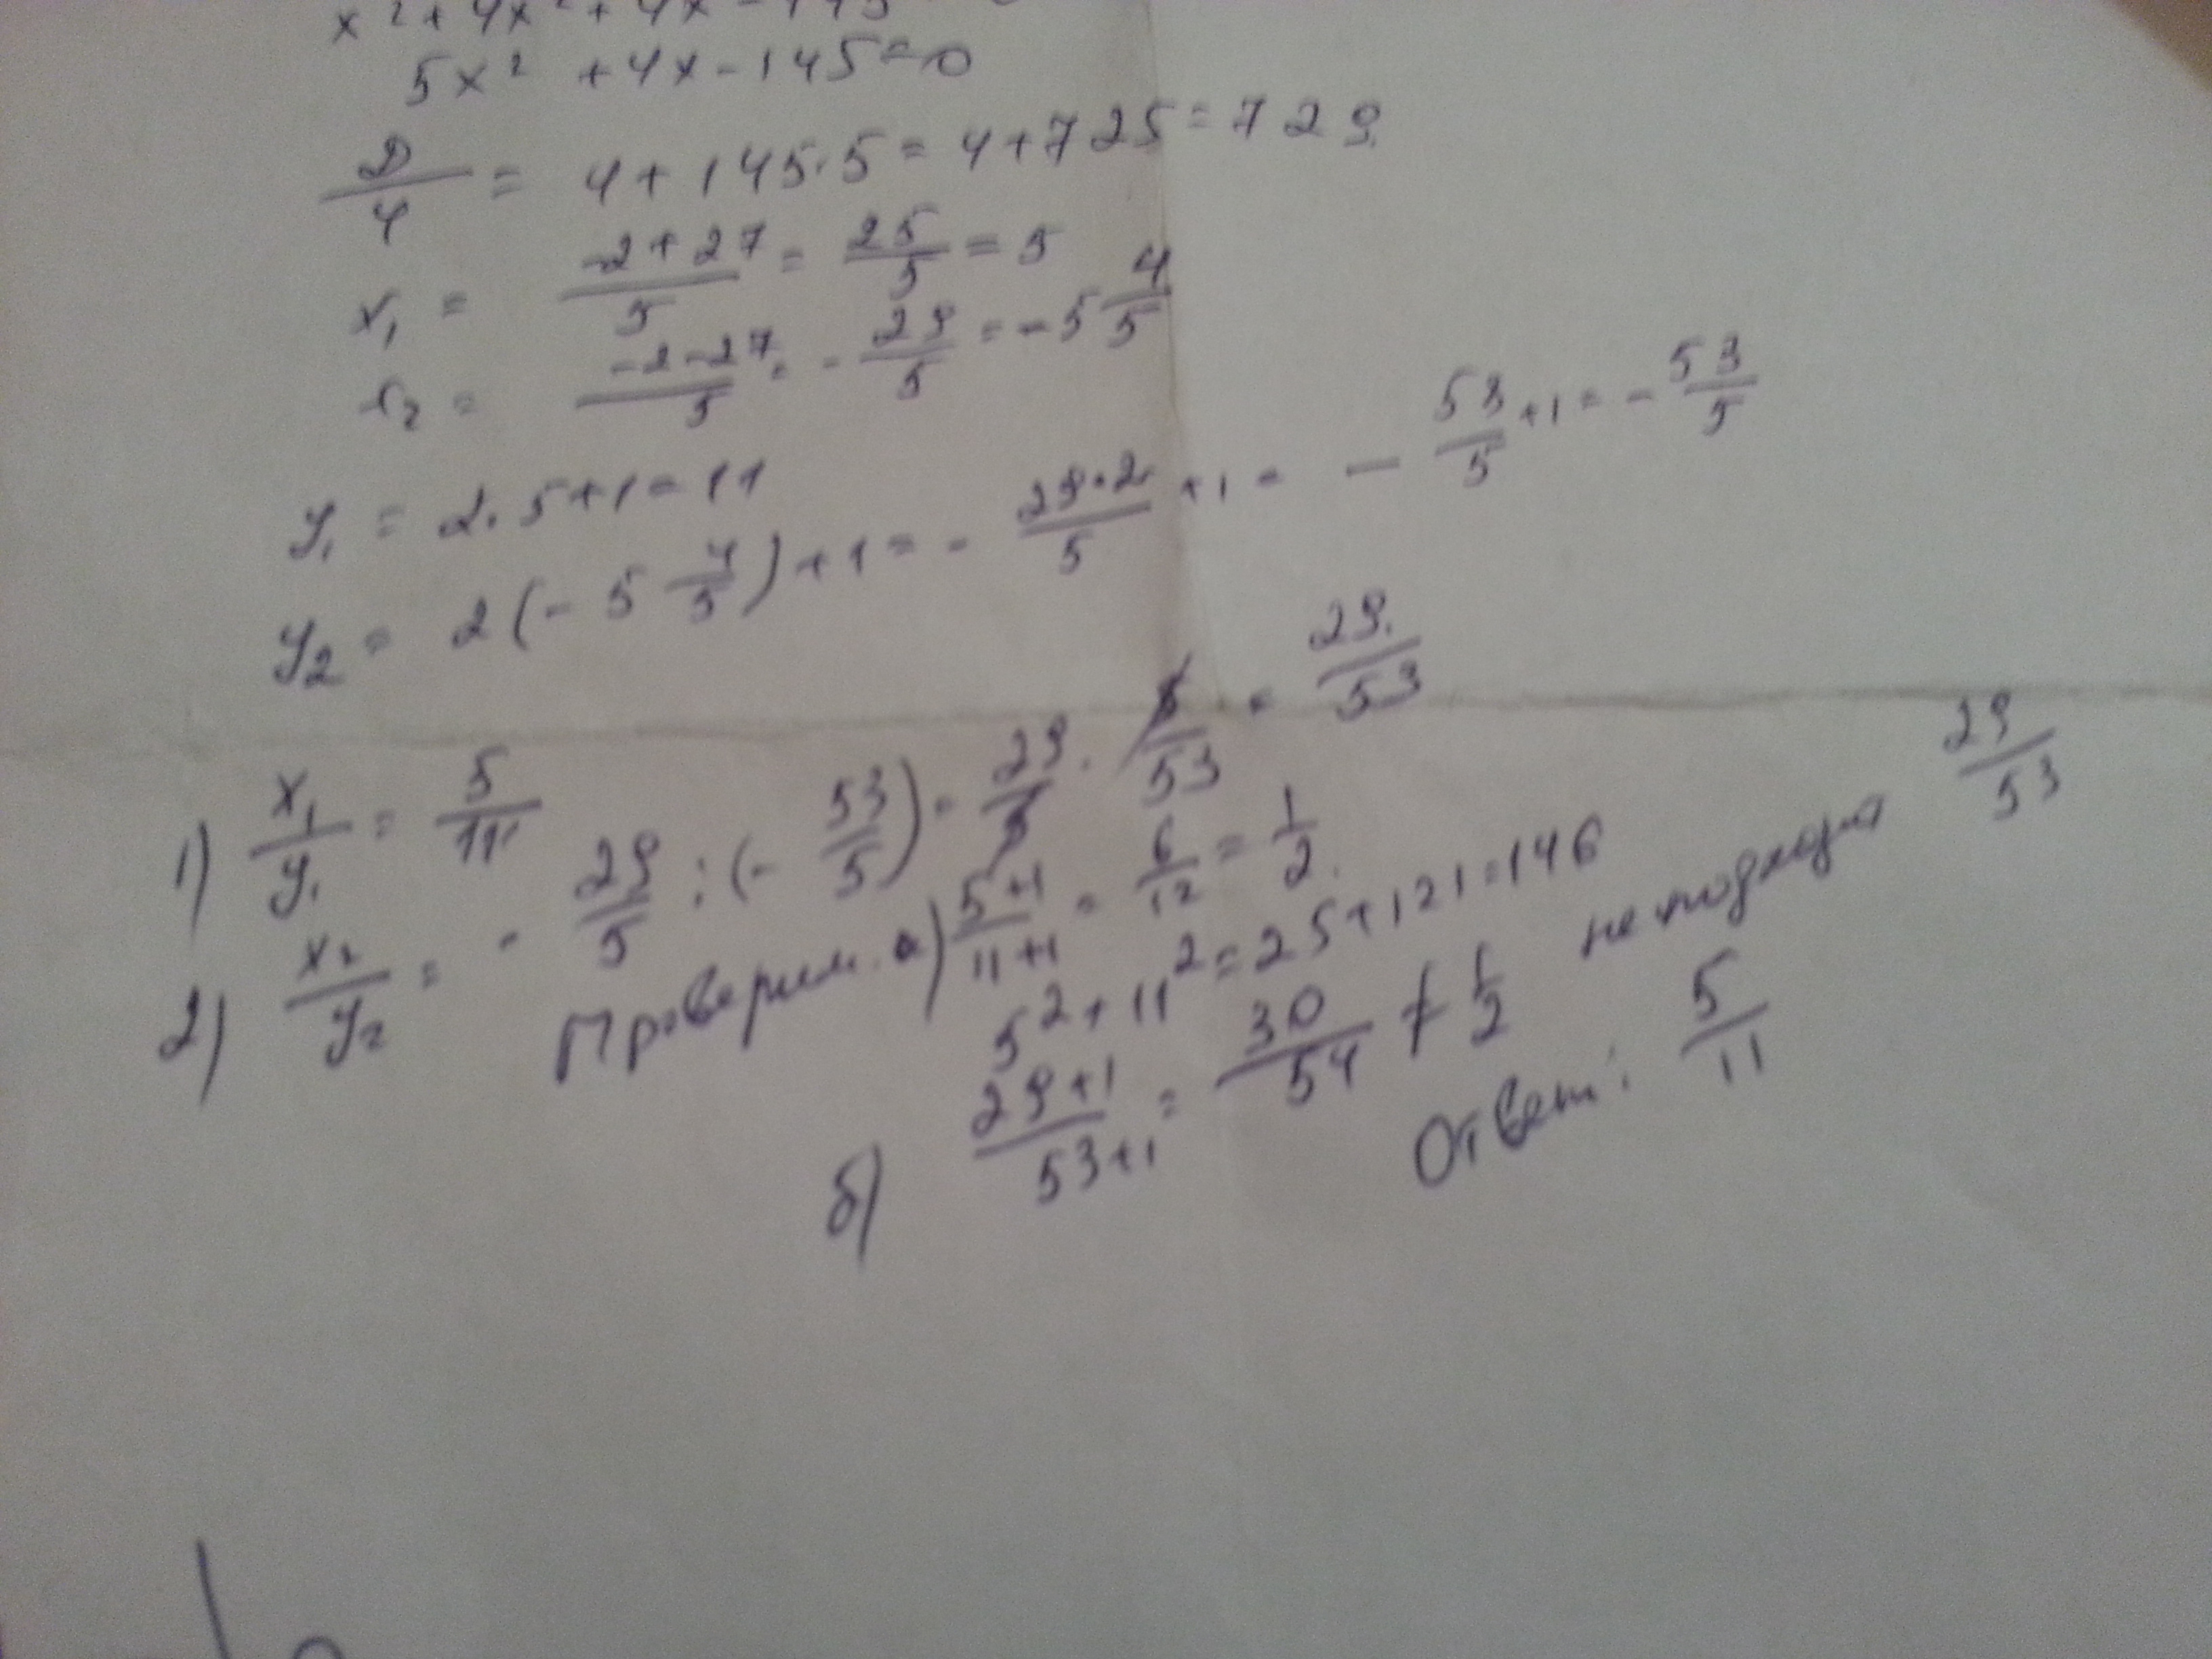 x² + 4x² + 4x - 145
5x² + 4x - 145 = 0
D/4 = 4 + 145·5 = 4 + 725 = 729
x₁ = (-2 + 27)/5 = 25/5 = 5
x₂ = (-2 - 27)/5 = - 29/5 = - 5 4/5
y₁ = 2·5 + 1 = 11
y₂ = 2(- 5 4/5) + 1 = - (29·2)/5 + 1 = - 58/5 + 1 = - 53/5
1) x₁/y₁ = 5/11
2) x₂/y₂ = - 29/5 : (- 53/5) = 29/5 · 5/53 = 29/53
Проверим. а) (5+1)/(11+1) = 6/12 = 1/2.
5² + 11² = 25 + 121 = 146
б) (29+1)/(53+1) = 30/54 ≠ 1/2 не подходит 29/53
Ответ: 5/11